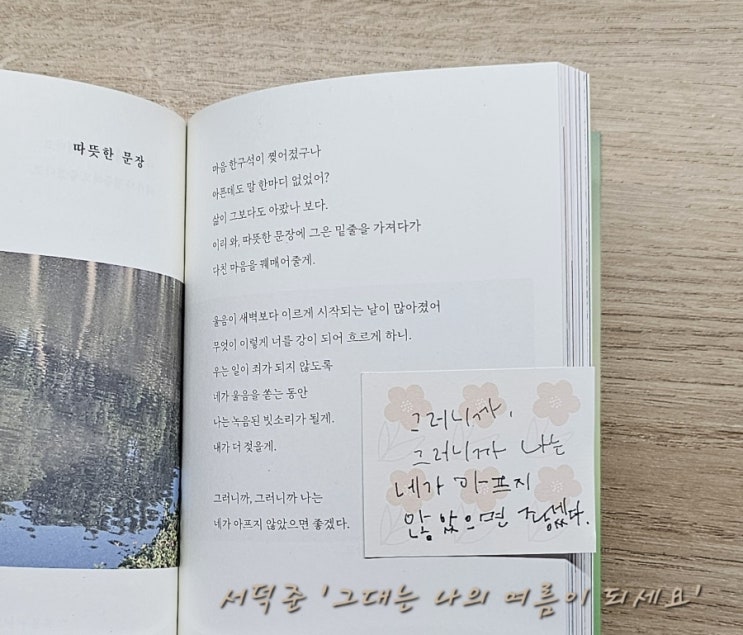 따뜻한 문장
마음 한구석이 찢어졌구나
아픈데도 말 한마디 없었어?
삶이 그보다도 아팠나 보다.
이리 와, 따뜻한 문장에 그은 밑줄을 가져다가
다친 마음을 꿰매어줄게.
울음이 새벽보다 이르게 시작되는 날이 많아졌어
무엇이 이렇게 너를 강이 되어 흐르게 하니.
우는 일이 죄가 되지 않도록
네가 울음을 쏟는 동안
나는 녹음된 빗소리가 될게.
내가 더 젖을게.
그러니까, 그러니까 나는
네가 아프지 않았으면 좋겠다.
그러니까,
그러니까 나는
네가 아프지
않았으면 좋겠다.
서덕준 '그대는 나의 여름이 되세요'